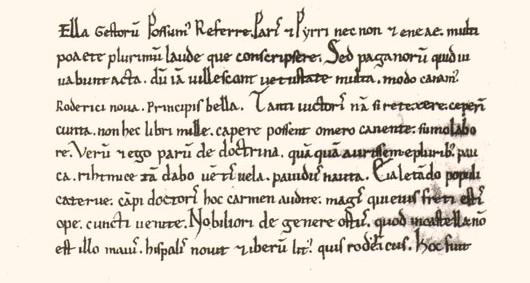 Ella gestorū possumꝰ referre. Paris ⁊ pyrri nec non ⁊ eneae. multi
poaete plurimū laude que conscripsere. Sed paganorū quid iu
uabunt acta. dū iā uillescant uetustate multa. modo canamꝰ
Roderici noua. principis bella. Tanti uictoris nā si retexere. ceperī
cunta. non hec libri mille. capere possent omero canente. sumo labo
re. Verū ⁊ ego parū de doctrina. quā quā aurissem e pluribꝰ. pau
ca. rihtmice tā dabo uētis uela. pauidus nauta. Eia letādo populi
caterue. cāpi doctoris hoc carmen audite. magis qui eius freti estis
ope. cuncti uenite. Nobiliori de genere ortus. quod in castella nō
est illo maius. hispalis nouit ⁊ iberū litꝰ quis rodericus. Hoc fuit